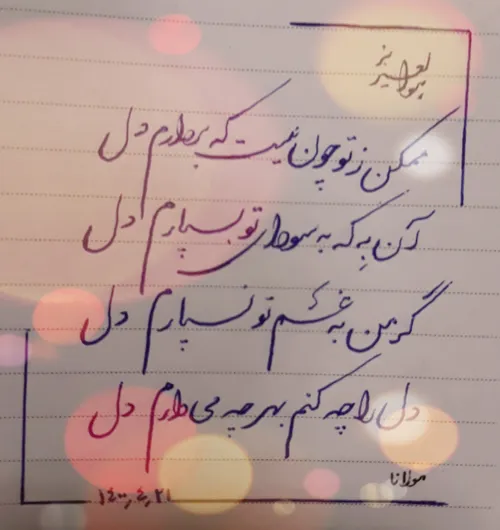 هوالعزیز
ممکن ز تو چون نیست که بردارم دل
آن به که به سودای تو بسپارم دل
گر من به غم تو نسپارم دل
دل را چه کنم بهر چه می دارم دل
مولانا
۱۴۰۰,۴,۲۱